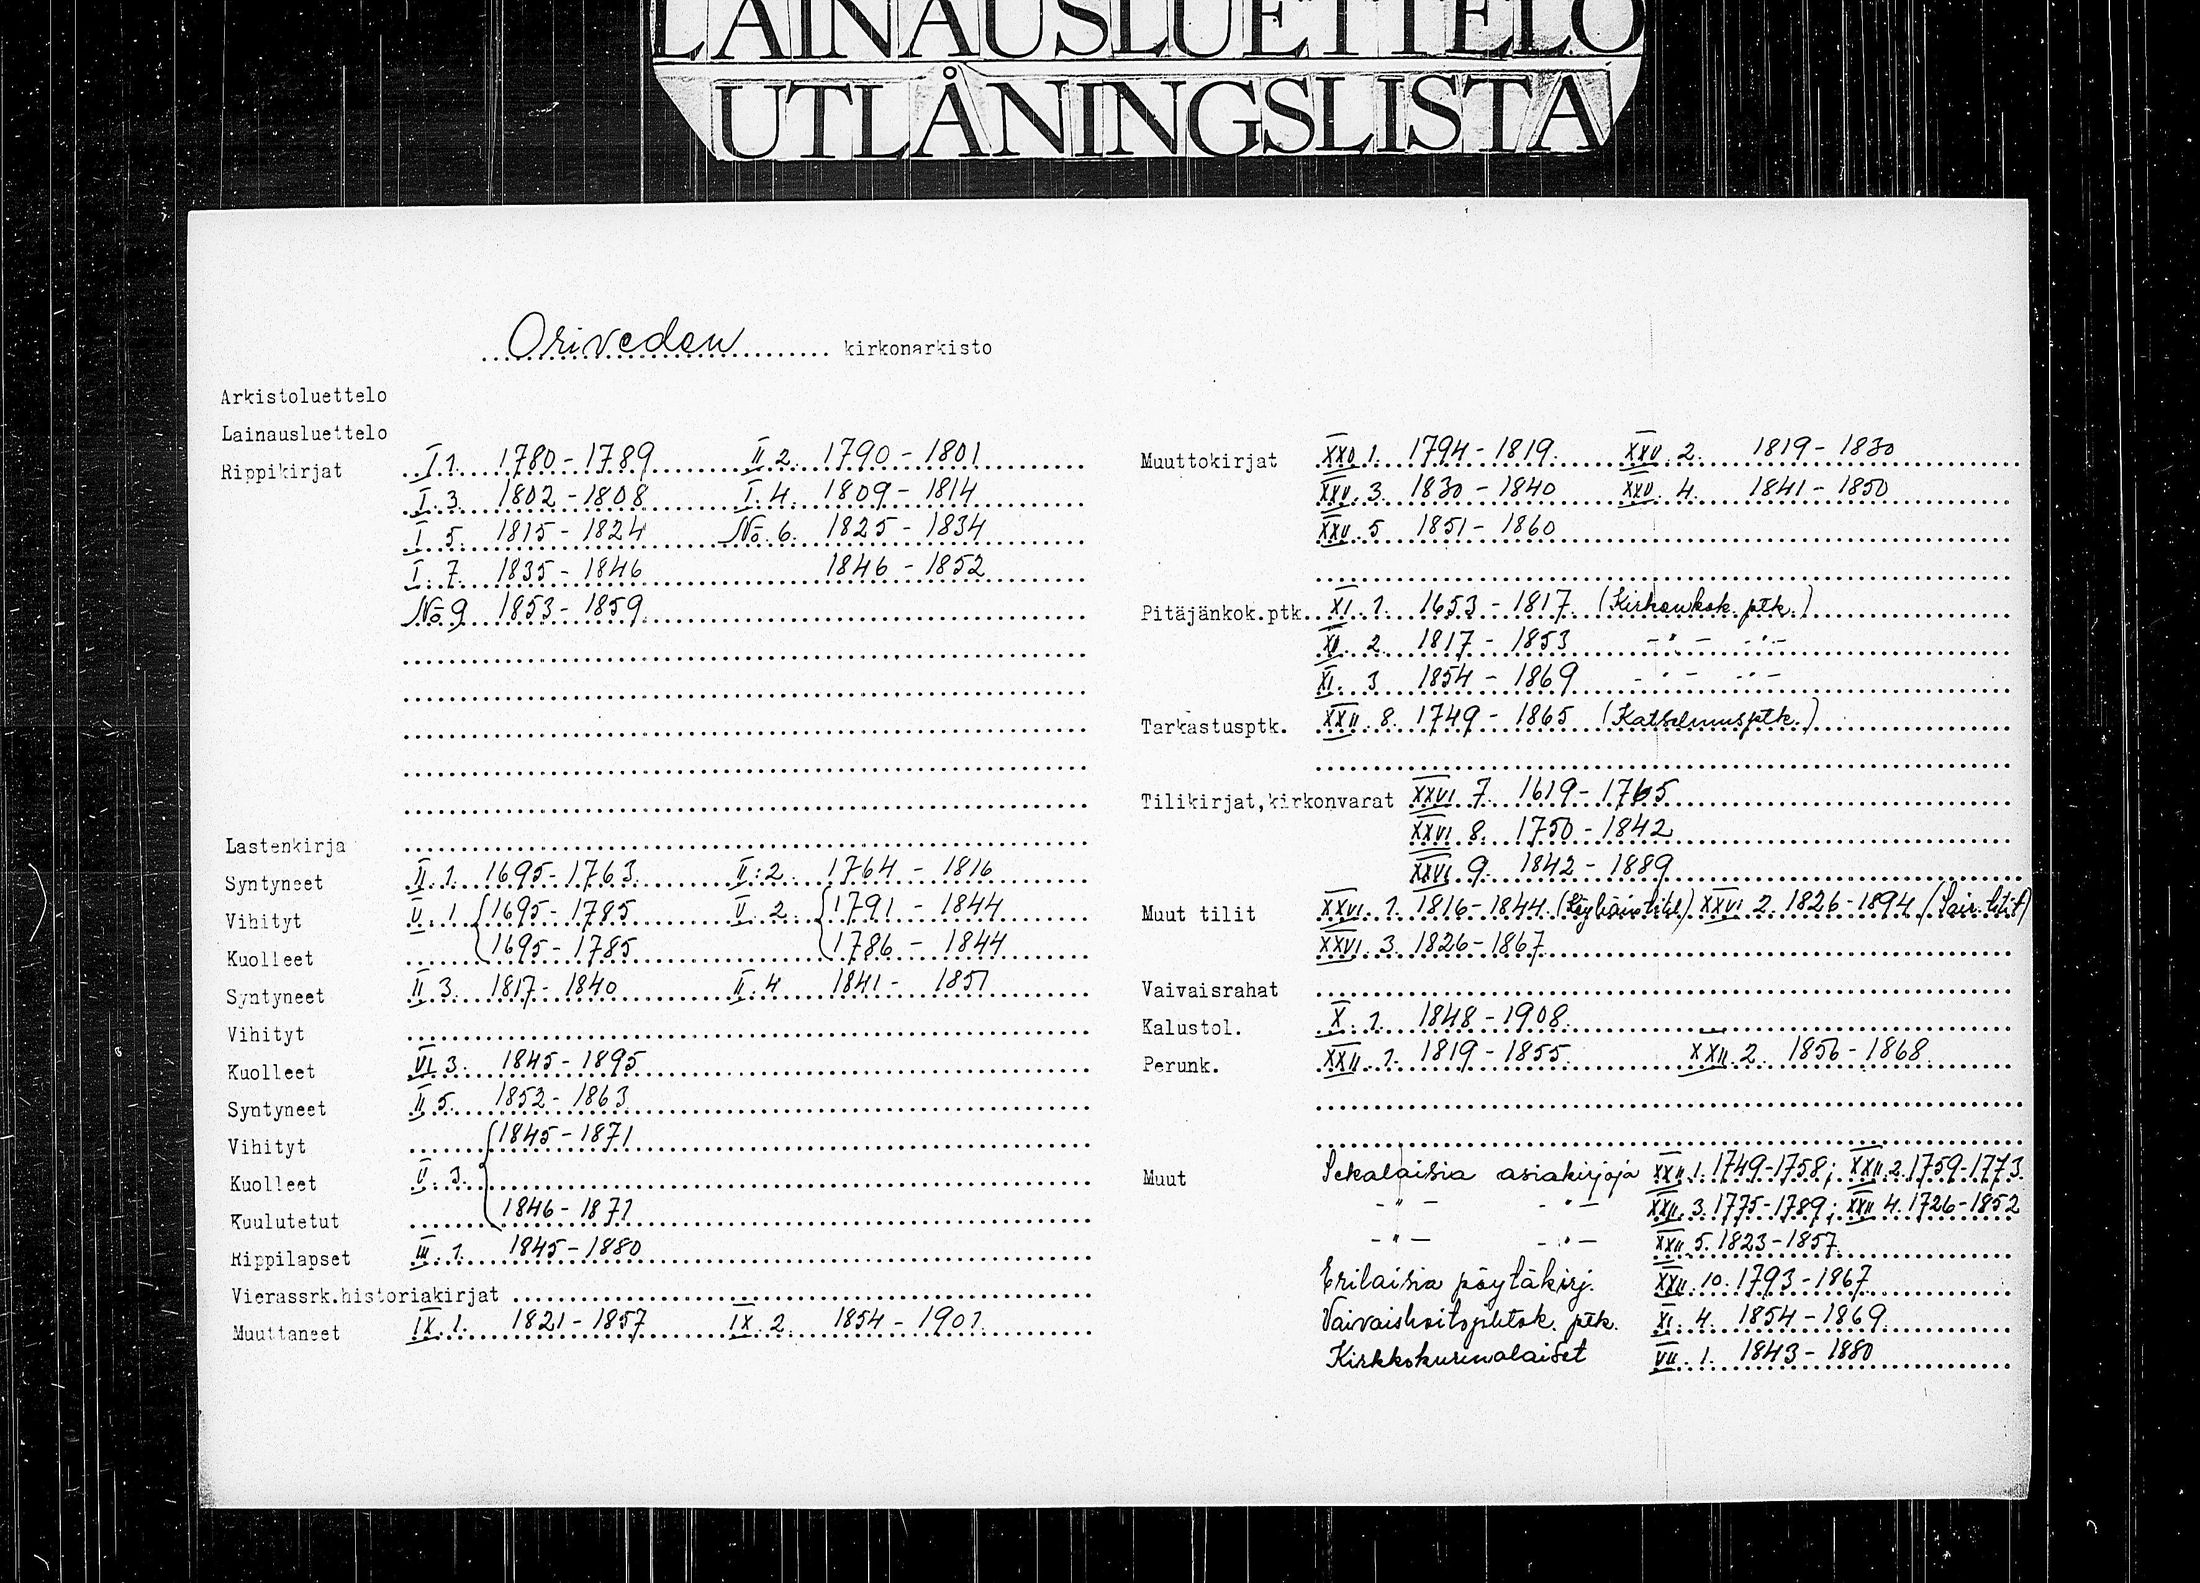 LAINAUSLUETTELO
UTLÅNINGSLISTA
Oriveden kirkonarkisto
Arkistoluettelo
Lainausluettelo
Rippikirjat I 1. 1780 - 1789 II 2. 1790 - 1801
I. 3. 1802 - 1808 I. 4. 1809 - 1814
I 5. 1815 - 1824 No. 6. 1825 - 1834
I. 7. 1835 - 1846 1846 - 1852
No 9 1853 - 1859
Lastenkirja
Syntyneet II. 1. 1695 - 1763 II. 2. 1764 - 1816
Vihityt V. 1. 1695 - 1785 V. 2. 1791 - 1844
Kuolleet 1695 - 1785 1786 - 1844
Syntyneet II. 3. 1817 - 1840 II. 4 1841 - 1851
Vihityt
Kuolleet VI. 3. 1845 - 1895
Syntyneet II 5. 1852 - 1863
Vihityt 1845 - 1871
Kuolleet V. 3.
Kuulutetut 1846 - 1871
Rippilapset III. 1. 1845 - 1880
Vierassrk.historiakirjat
Muuttaneet IX. 1. 1821 - 1857 IX. 2. 1854 - 1901
Muuttokirjat XXV 1. 1794 - 1819. XXV. 2. 1819 - 1830
XXV. 3. 1830 - 1840 XXV. 4. 1841 - 1850
XXV. 5 1851 - 1860
Pitäjänkok.ptk. XI. 1. 1653 - 1817. (Kirkonkok. ptk.)
XI. 2. 1817 - 1853 - " - - " -
XI. 3 1854 - 1869 - " - - " -
Tarkastusptk. XXII. 8. 1749 - 1865 (Katselmusptk.)
Tilikirjat,kirkonvarat XXVI. 7. 1619 - 1765
XXVI. 8. 1750 - 1842
XXVI. 9. 1842 - 1889
Muut tilit XXVI. 1. 1816 - 1844 XXVI. 2. 1826 - 1894 (Sair. tilit)
XXVI. 3. 1826 - 1867
Vaivaisrahat
Kalustol. X. 1. 1848 - 1908
Perunk. XXII. 1. 1819 - 1855 XXII. 2. 1856 - 1868
Muut Sekalaisia asiakirjoja XXII. 1. 1749-1758; XXII. 2. 1759-1773.
- " - - " - XXII. 3. 1775-1789; XXII 4. 1726-1852
- " - - " - XXII. 5. 1823-1857
Erilaisia pöytäkirj. XXII. 10. 1793-1867
Vaivaishoitojohtok. ptk. XI. 4. 1854 - 1869
Kirkkokurinalaiset VII. 1. 1843 - 1880